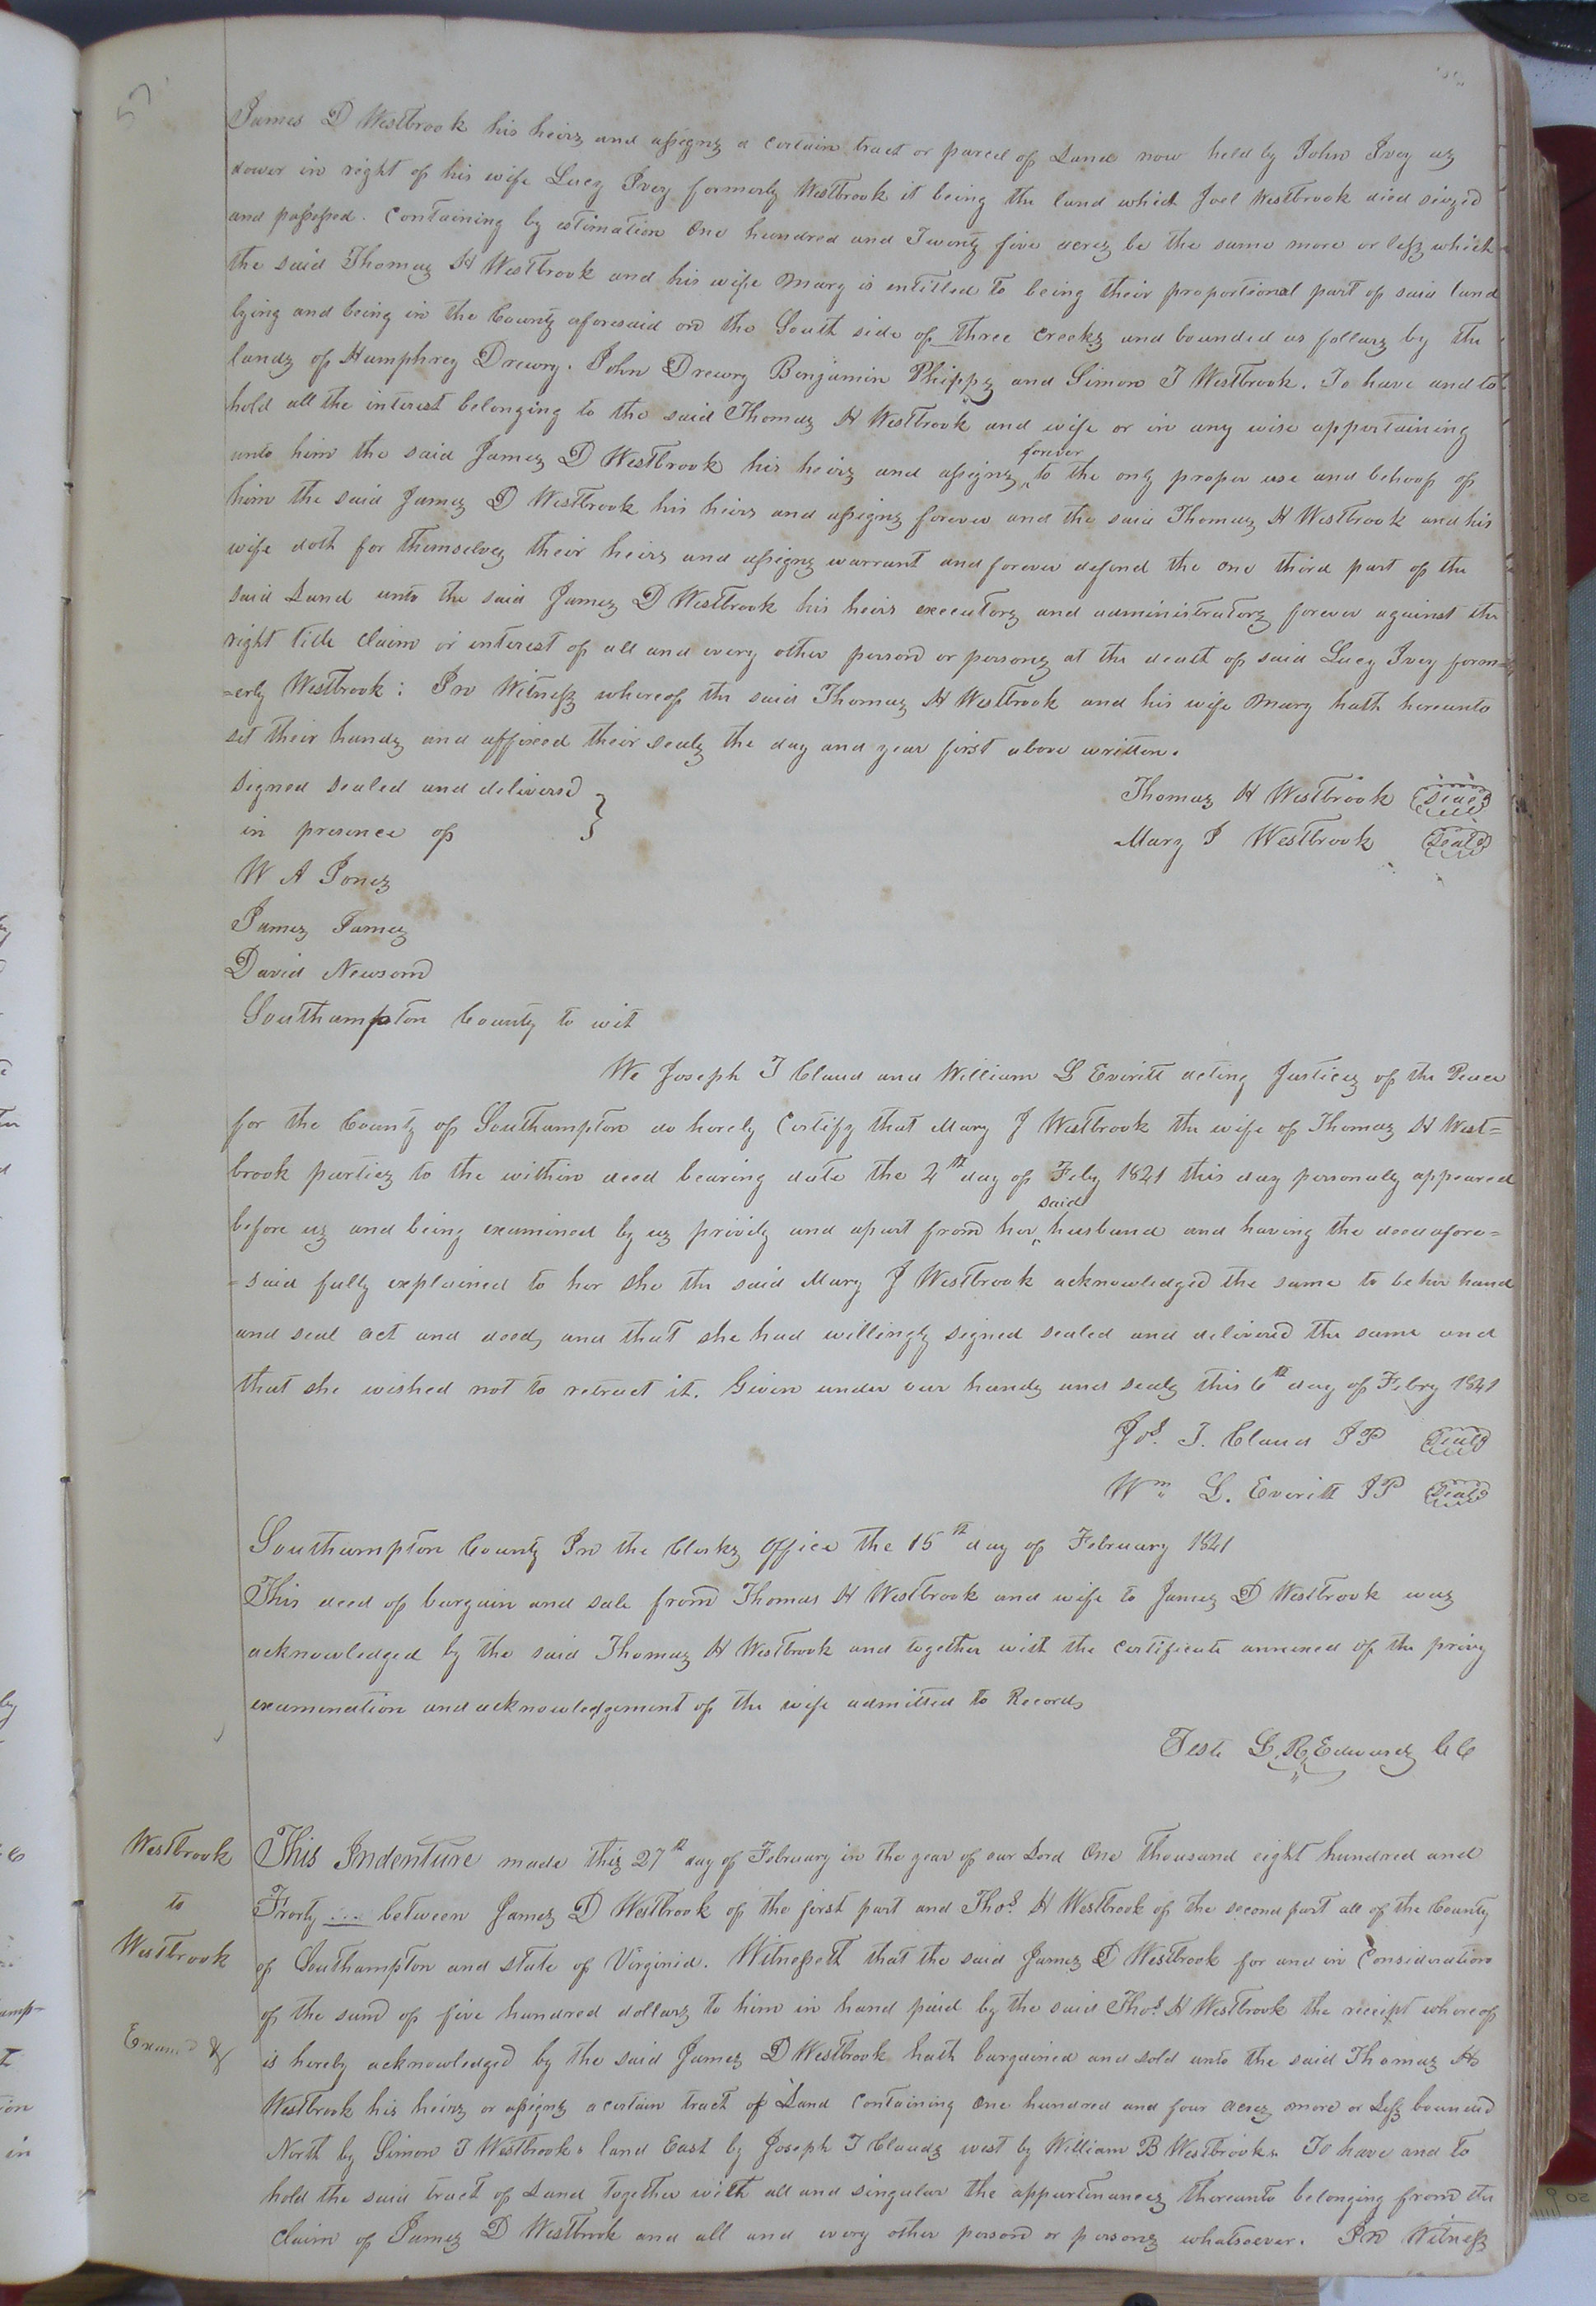 57
James D Westbrook his heirs and assigns a certain tract or parcel of Land now held by John Ivey as
dower in right of his wife Lucy Ivey formerly Westbrook it being the land which Joel Westbrook died siezed
and possessed. Containing by estimation One hundred and Twenty five acres be the same more or less which
the said Thomas H Westbrook and his wife Mary is entitled to being their proportional part of said land
lying and being in the County aforesaid on the South side of three creeks and bounded as follars by the
lands of Humphrey Drewry. John Drewry Benjamin Phipps and Simon T Westbrook. To have and to
hold all the interest belonging to the said Thomas H Westbrook and wife or in any wise appertaining
unto him the said James D Westbrook his heirs and assigns forever to the only proper use and behoof of
him the said James D Westbrook his heirs and assigns forever and the said Thomas H Westbrook and his
wife doth for themselves their heirs and assigns warrant and forever defend the one third part of the
said Land unto the said James D Westbrook his heirs executors and administrators forever against the
right title claim or interest of all and every other person or persons at the death of said Lucy Ivey form=
=erly Westbrook: In Witness whereof the said Thomas H Westbrook and his wife Mary hath hereunto
set their hands and affixed their seals the day and year first above written.
signed sealed and delivered }
Thomas H Westbrook Seal
in presence of
Mary J Westbrook Seal
W A Jones
James James
David Newsom
Southampton County to wit
We Joseph T Claud and William L Everitt acting Justices of the Peace
for the County of Southampton do herely Certify that Mary J Westbrook the wife of Thomas H West=
brook parties to the within deed bearing date the 2th day of Feby 1841 this day personaly appeared
before us and being examined by us privily and apart from her said husband and having the deed afore=
=said fully explained to her she the said Mary J Westbrook acknowledged the same to be her hand
and seal act and deed, and that she had willingly signed sealed and delivered the same and
that she wished not to retract it. Given under our hands and seals this 6th day of Febry 1841
Jos. T. Claud JP Seal
Wm. L. Everitt JP Seal
Southampton County In the Clerks Office the 15th day of February 1841
This deed of bargain and sale from Thomas H Westbrook and wife to James D Westbrook was
acknowledged by the said Thomas H Westbrook and together with the certificate annexed of the privy
examination and acknowledgement of the wife admitted to Record,
Teste L. R. Edwards CC
Westbrook
to
Westbrook
Examd &
This Indenture made this 27th day of February in the year of our Lord One Thousand eight hundred and
Frorty ... between James D Westbrook of the first part and Thos. H Westbrook of the second part all of the County
of Southampton and state of Virginia. Witnesseth that the said James D Westbrook for and in Consideration
of the sum of five hundred dollars to him in hand paid by the said Thos. H Westbrook the receipt whereof
is hereby acknowledged by the said James D Westbrook hath bargained and sold unto the said Thomas H
Westbrook his heirs or assigns a certain tract of Land Containing One hundred and four acres more or Less bounded
North by Simon T Westbrooks land East by Joseph T Clauds west by William B Westbrooks. To have and to
hold the said tract of Land together with all and singular the appurtenances thereunto belonging from the
claim of James D Westbrook and all and every other person or persons whatsoever. In Witness